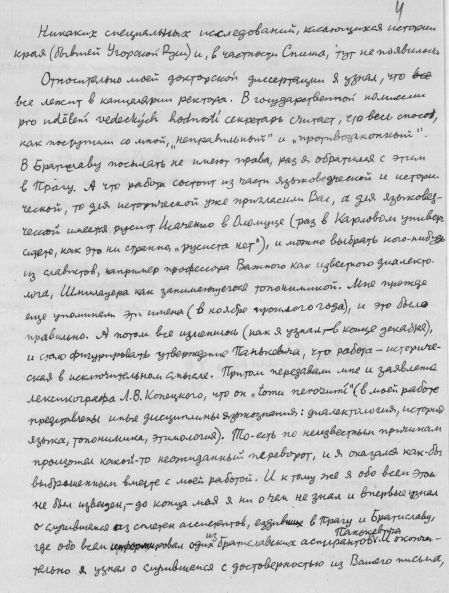 4
Никаких специальных исследований, касающихся истории
края (бывшей Угорской Руси) и, в частности Спиша, тут не появилось
Относительно моей докторской диссертации я узнал, что все
все лежит в канцелярии ректора. В государственной комиссии
pro udělení vedeckých hodností секретарь считает, что весь способ,
как поступили со мной, "неправильный" и "противозаконный".
В Братиславу посылать не имеют права, раз я обратился с этим
в Прагу. А что работа состоит из части языковедческой и истори-
ческой, то для исторической уже пригласили Вас, а для языковед-
ческой имеется русист Исаченко в Оломуце (раз в Карловом универ-
ситете, как это ни странно, "русиста нет"), и можно выбрать кого-нибудь
из славистов, например профессора Важного как известного диалекто-
лога, Шмилауера как занимающегося топонимикой. Мне прежде
еще упоминали эти имена (в ноябре прошлого года), и это было
правильно. А потом все изменилось (как я узнал, в конце декабря),
и стало фигурировать утверждение Панькевича, что работа – историче-
ская в исключительном смысле. Притом передавали мне и заявление
лексикографа Л.В. Копецкого, что он "tomu nerozumí" (в моей работе
представлены иные дисциплины языкознания: диалектология, история
языка, топонимика, этимология). То-есть по неизвестным причинам
произошел какой-то неожиданный переворот, и я оказался как-бы
выброшенным вместе с моей работой. И к тому же я обо всем этом
не был извещен, – до конца мая я ни о чем не знал и впервые узнал
о случившемся из сплетен ассистентов, ездивших в Прагу и Братиславу,
где обо всем информировал один из братиславских аспирантов Панькевича. И оконча-
тельно я узнал о случившемся с достоверностью из Вашего письма,